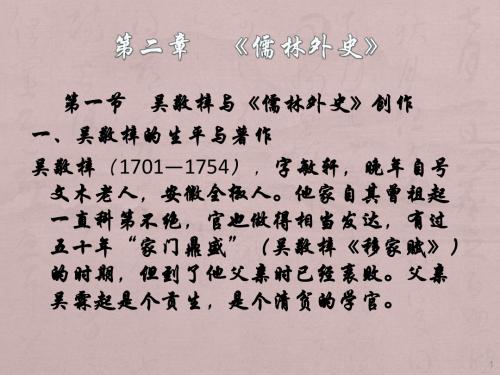 第二章 《儒林外史》
第一节 吴敬梓与《儒林外史》创作
一、吴敬梓的生平与著作
吴敬梓（1701—1754），字敏轩，晚年自号
文木老人，安徽全椒人。他家自其曾祖起
一直科第不绝，官也做得相当发达，有过
五十年“家门鼎盛”（吴敬梓《移家赋》）
的时期，但到了他父亲时已经衰败。父亲
吴霖起是个贡生，是个清贫的学官。
1